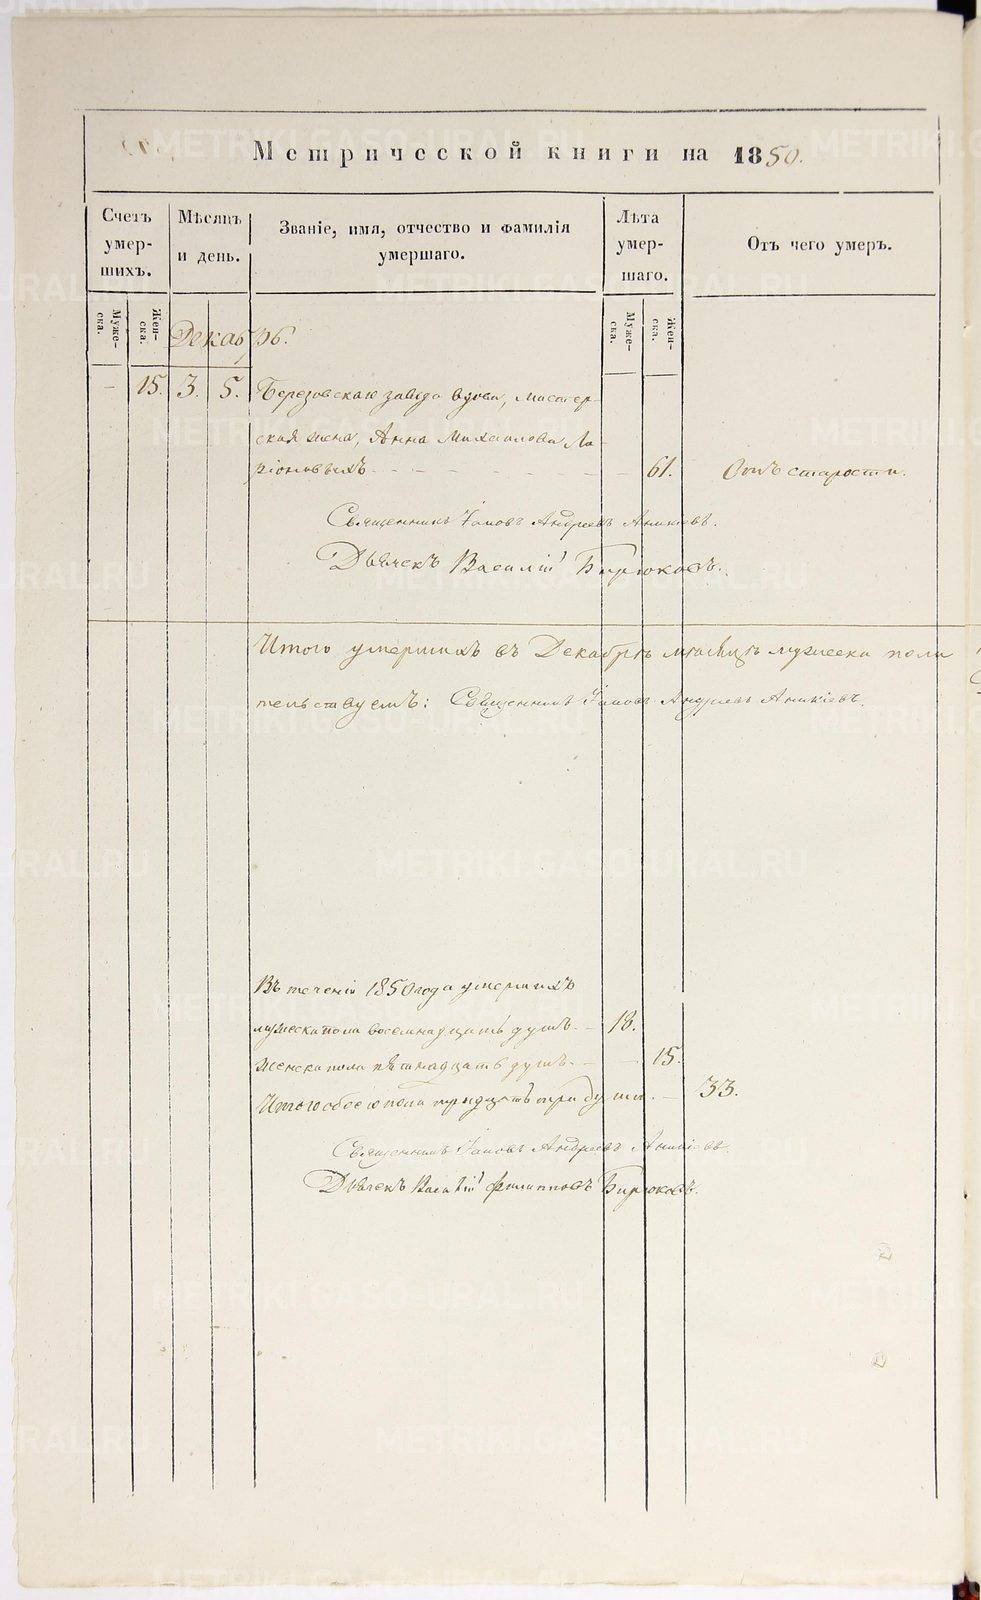 Метрической книги на 1850.
Счетъ умер- шихъ.
Мѣсяцъ и день.
Званіе, имя, отчество и фамилія умершаго.
Лѣта умер- шаго.
Отъ чего умеръ.
Муже- ска.
Жен- ска.
Муже- ска.
Жен- ска.
Декабрь.
— 15. 3. 5. Березовскаго завода вдова, мастер-
ская жена, Анна Михаилова Ла-
ріоновыхъ 61. Отъ старости.
Священникъ Іаковъ Андреевъ Аникіевъ.
Дьячекъ Василій Бирюковъ.
Итого умершихъ въ Декабрѣ мѣсяцѣ мужеска пола
тельствуемъ: Священникъ Іаковъ Андреевъ Аникіевъ.
Въ теченіи 1850 года умершихъ
мужеска пола восемнадцать душъ. — 18.
женска пола пятнадцать душъ. — 15.
Итого обоего пола тридцать три души. — 33.
Священникъ Іаковъ Андреевъ Аникіевъ.
Дьячекъ Василій Филипповъ Бирюковъ.
METRIKI.GASO-URAL.RU